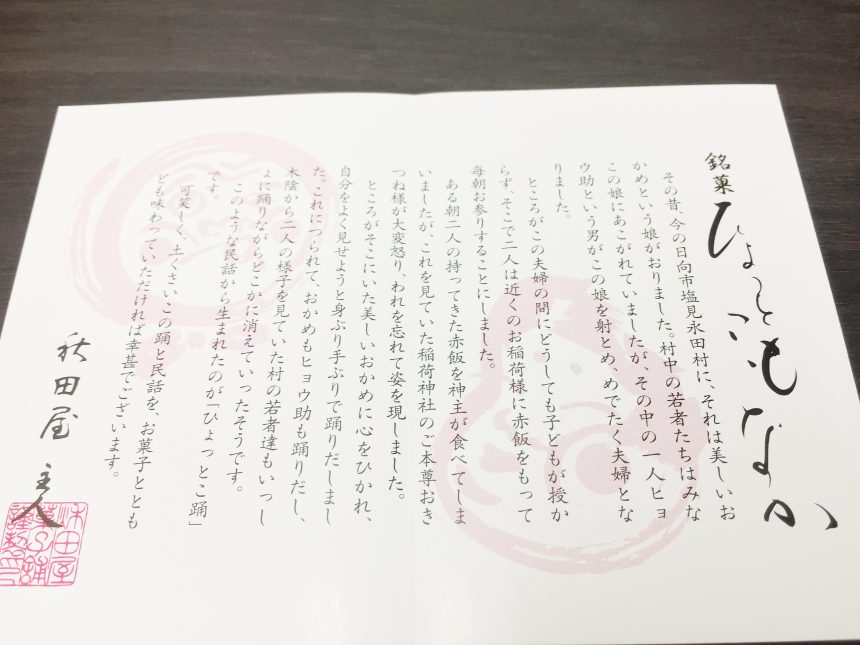 銘菓
ひょっとこもなか
その昔、今の日向市塩見永田村に、それは美しいお
かめという娘がおりました。村中の若者たちはみな
この娘にあこがれていましたが、その中の一人ヒョ
ウ助という男がこの娘を射とめ、めでたく夫婦とな
りました。
ところがこの夫婦の間にどうしても子どもが授か
らず、そこで二人は近くのお稲荷様に赤飯をもって
毎朝お参りすることにしました。
ある朝二人の持ってきた赤飯を神主が食べてしま
いましたが、これを見ていた稲荷神社のご本尊おき
つね様が大変怒り、われを忘れて姿を現しました。
ところがそこにいた美しいおかめに心をひかれ、
自分をよく見せようと身ぶり手ぶりで踊りだしまし
た。これにつられて、おかめもヒョウ助も踊りだし、
木陰から二人の様子を見ていた村の若者達もいっし
ょに踊りながらどこかに消えていったそうです。
このような民話から生まれたのが「ひょっとこ踊」
です。
可笑しく、土くさいこの踊と民話を、お菓子ととも
ども味わっていただければ幸甚でございます。
秋田屋 主人